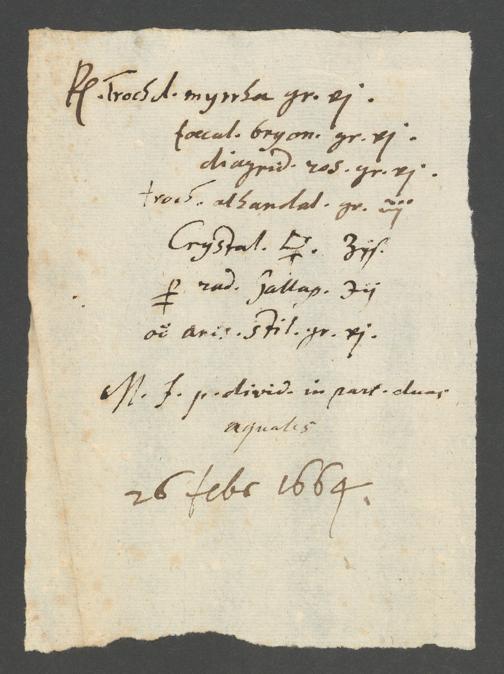 ℞. Troch d. myrrha gr. vj.
fœcul. bryon. gr. vj.
diagrid. ros. gr. vj.
troch. alhandal. gr. iij
Crystal. 🜿. ʒijß.
rad. Jallap. ℈ij
anis. stil. gr. vj.
M. f. p. divid. in part. duas
aquales
26 febr 1664.